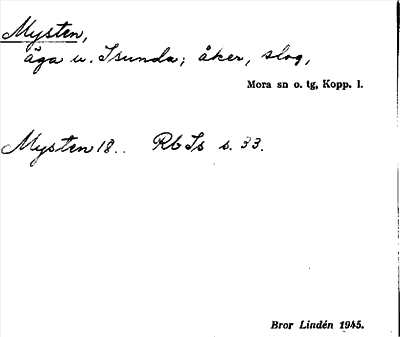 Mysten,
äga u. Isunda; åker, slog,
Mora sn o. tg, Kopp. l.
Mysten 18.. Rb Is s. 33.
Bror Lindén 1945.